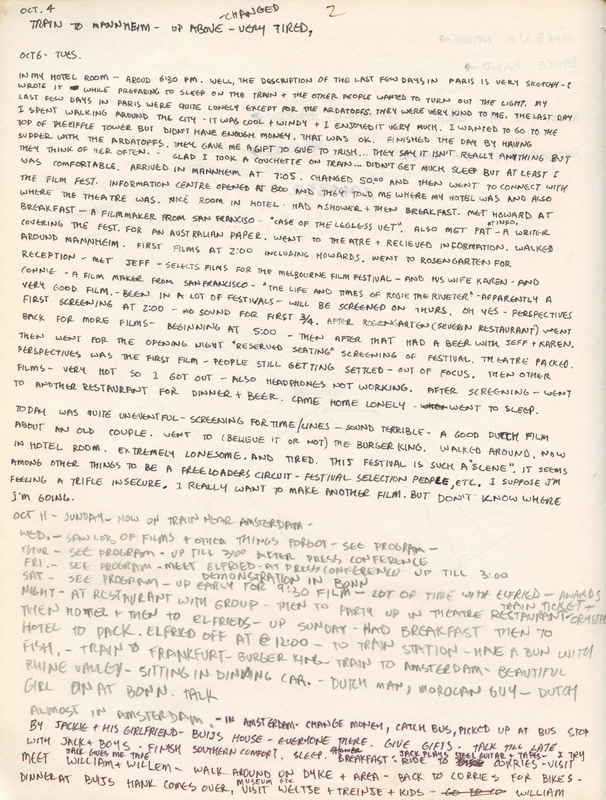 OCT. 4 - CHANGED 2
TRAIN TO MANNHEIM - UP ABOVE - VERY TIRED,
OCT 6 - TUES.
IN MY HOTEL ROOM - AROUD 6:30 PM. WELL, THE DESCRIPTION OF THE LAST FEW DAYS IN PARIS IS VERY SKETCHY - I
WROTE IT WHILE PREPARING TO SLEEP ON THE TRAIN + THE OTHER PEOPLE WANTED TO TURN OUT THE LIGHT. MY
LAST FEW DAYS IN PARIS WERE QUITE LONELY EXCEPT FOR THE ARDATOFFS. THEY WERE VERY KIND TO ME. THE LAST DAY
I SPENT WALKING AROUND THE CITY - IT WAS COOL + WINDY + I ENJOYED IT VERY MUCH. I WANTED TO GO TO THE
TOP OF THE EIFFLE TOWER BUT DIDN'T HAVE ENOUGH MONEY. THAT WAS OK. FINISHED THE DAY BY HAVING
SUPPER WITH THE ARDATOFFS. THEY GAVE ME A GIFT TO GIVE TO TRISH... THEY SAY IT ISN'T REALLY ANYTHING BUT
THEY THINK OF HER OFTEN. GLAD I TOOK A COUCHETTE ON TRAIN... DIDN'T GET MUCH SLEEP BUT AT LEAST I
WAS COMFORTABLE. ARRIVED IN MANNHEIM AT 7:05. CHANGED 50.00 AND THEN WENT TO CONNECT WITH
THE FILM FEST. INFORMATION CENTRE OPENED AT 8:00 AND THEY TOLD ME WHERE MY HOTEL WAS AND ALSO
WHERE THE THEATRE WAS. NICE ROOM IN HOTEL. HAD A SHOWER + THEN BREAKFAST. MET HOWARD AT
BREAKFAST - A FILMMAKER FROM SAN FRANCISO - "CASE OF THE LEGLESS VET". ALSO MET PAT AT INFO. - A WRITER
COVERING THE FEST. FOR AN AUSTRALIAN PAPER. WENT TO THEATRE + RECIEVED INFORMATION. WALKED
AROUND MANNHEIM. FIRST FILMS AT 2:00 INCLUDING HOWARDS. WENT TO ROSENGARTEN FOR
RECEPTION - MET JEFF - SELECTS FILMS FOR THE MELBOURNE FILM FESTIVAL - AND HIS WIFE KAREN - AND
CONNIE - A FILM MAKER FROM SAN FRANCISCO - "THE LIFE AND TIMES OF ROSIE THE RIVETER" - APPARENTLY A
VERY GOOD FILM - BEEN IN A LOT OF FESTIVALS - WILL BE SCREENED ON THURS. OH YES - PERSPECTIVES
FIRST SCREENING AT 2:00 - NO SOUND FOR FIRST 3/4. AFTER ROSENGARTEN (SEVERIN RESTAURANT) WENT
BACK FOR MORE FILMS - BEGINNING AT 5:00 - THEN AFTER THAT HAD A BEER WITH JEFF + KAREN.
THEN WENT FOR THE OPENING NIGHT "RESERVED SEATING" SCREENING OF FESTIVAL. THEATRE PACKED.
PERSPECTIVES WAS THE FIRST FILM - PEOPLE STILL GETTING SETTLED - OUT OF FOCUS. THEN OTHER
FILMS - VERY HOT SO I GOT OUT - ALSO HEADPHONES NOT WORKING. AFTER SCREENING - WENT
TO ANOTHER RESTAURANT FOR DINNER + BEER. CAME HOME LONELY - WENT TO SLEEP.
TODAY WAS QUITE UNEVENTFUL - SCREENING FOR TIME/LINES - SOUND TERRIBLE - A GOOD DUTCH FILM
ABOUT AN OLD COUPLE. WENT TO (BELIEVE IT OR NOT) THE BURGER KING. WALKED AROUND. NOW
IN HOTEL ROOM. EXTREMELY LONESOME. AND TIRED. THIS FESTIVAL IS SUCH A "SCENE". IT SEEMS
AMONG OTHER THINGS TO BE A FREELOADERS CIRCUIT - FESTIVAL SELECTION PEOPLE, ETC. I SUPPOSE I'M
FEELING A TRIFLE INSECURE. I REALLY WANT TO MAKE ANOTHER FILM. BUT DON'T KNOW WHERE
I'M GOING.
OCT 11 - SUNDAY - NOW ON TRAIN NEAR AMSTERDAM -
WED. - SAW LOTS OF FILMS + OTHER THINGS FORGOT - SEE PROGRAM -
THUR - SEE PROGRAM - UP TILL 3:00 AFTER PRESS CONFERENCE
FRI. - SEE PROGRAM - MEET ELFRIED - AT PRESS CONFERENCE UP TILL 3:00
SAT - SEE PROGRAM - DEMONSTRATION IN BONN
UP EARLY FOR 9:30 FILM - LOT OF TIME WITH ELFRIED - AWARDS
NIGHT - AT RESTAURANT WITH GROUP - THEN TO PARTY UP IN THEATRE RESTAURANT - TRAIN TICKET +
THEN HOTEL + THEN TO ELFRIEDS - UP SUNDAY - HAD BREAKFAST THEN TO
HOTEL TO PACK. ELFRIED OFF AT @ 12:00 - TO TRAIN STATION - HAVE A BUN WITH
FISH, - TRAIN TO FRANKFURT - BURGER KING - TRAIN TO AMSTERDAM - BEAUTIFUL
RHINE VALLEY - SITTING IN DINDING CAR. - DUTCH MAN, MOROCAN GUY - DUTCH
GIRL ON AT BONN. TALK
ALMOST IN AMSTERDAM. - IN AMSTERDAM - CHANGE MONEY, CATCH BUS, PICKED UP AT BUS STOP
BY JACKIE + HIS GIRLFRIEND - BUIJS HOUSE - EVERYONE THERE. GIVE GIFTS. TALK TILL LATE
WITH JACK + BOYS. - FINISH SOUTHERN COMFORT. SLEEP. SHOWER BREAKFAST - JACK PLAYS STEEL GUITAR + TAPES - I TRY
JACK GIVES ME TAPE RIDE TO CORRIES - VISIT
MEET WILLIAM + WILLEM - WALK AROUND ON DYKE + AREA - BACK TO CORRIES FOR BIKES -
DINNER AT BUIJS HANK COMES OVER, MUSEUM ETC VISIT WELTJE + TREINJE + KIDS - WILLIAM